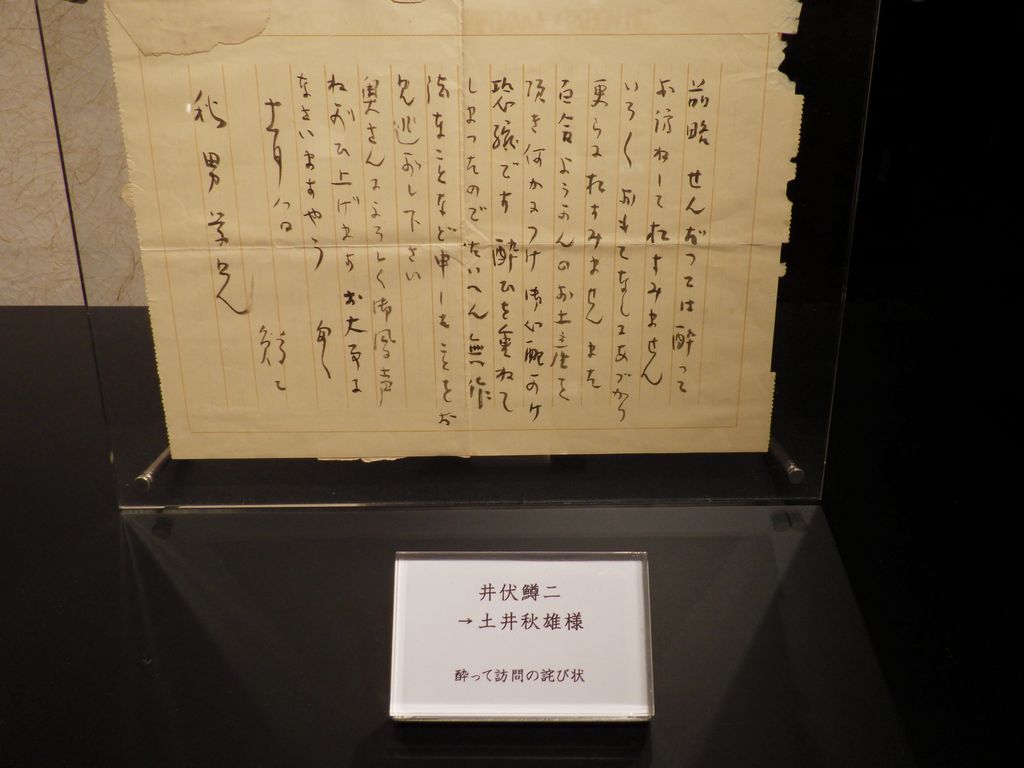 前略 せんだつては酔つて
お訪ねして相すみません
いろ〳〵おもてなしにあづかり
更らに相すみません また
百合ようかんのお土産を
頂き何かにつけ御心配かけ
恐縮です 酔ひを重ねて
しまつたのでたいへん無作
法なことなど申したことをお
見逃がし下さい
奥さんによろしく御風声
ねがひ上げます お大事に
なさいますやう
鱒二
秋男学兄
井伏鱒二
→土井秋雄様
酔って訪問の詫び状